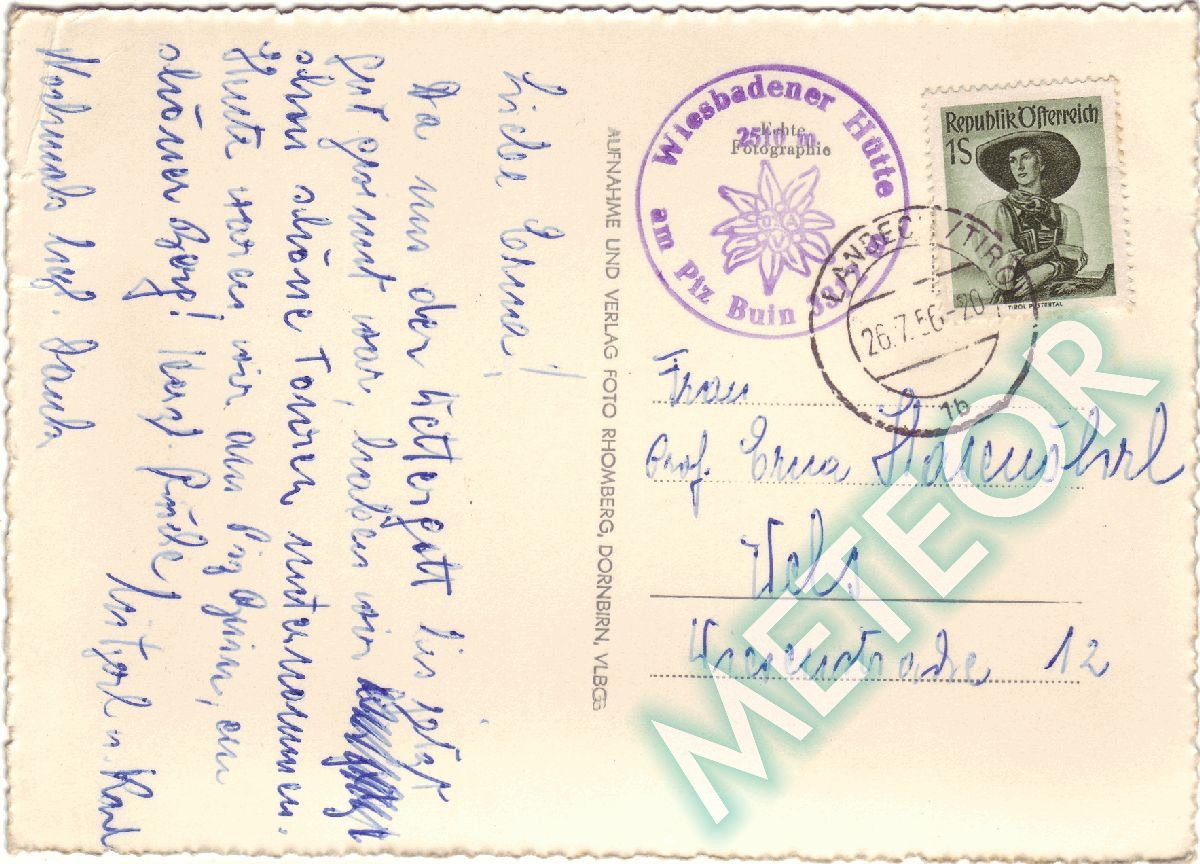 Liebe Erna!
Da uns der Wettergott bis jetzt
gut gesinnt war, haben wir
schon schöne Touren unternommen.
Heute waren wir am Piz Buin, ein
schöner Berg! Herzl. Grüße,
u. Karl
Nochmals herzl. Dank
AUFNAHME UND VERLAG FOTO RHOMBERG, DORNBIRN, VLBGG
Wiesbadener Hütte
2510 m
Echte
Fotographie
am Piz Buin
Republik Österreich
1S
TIROL PUSTERTAL
LANDECK /TIROL
26.7.56-20
1b
Frau
Prof. Erna
Wels
12
METEOR